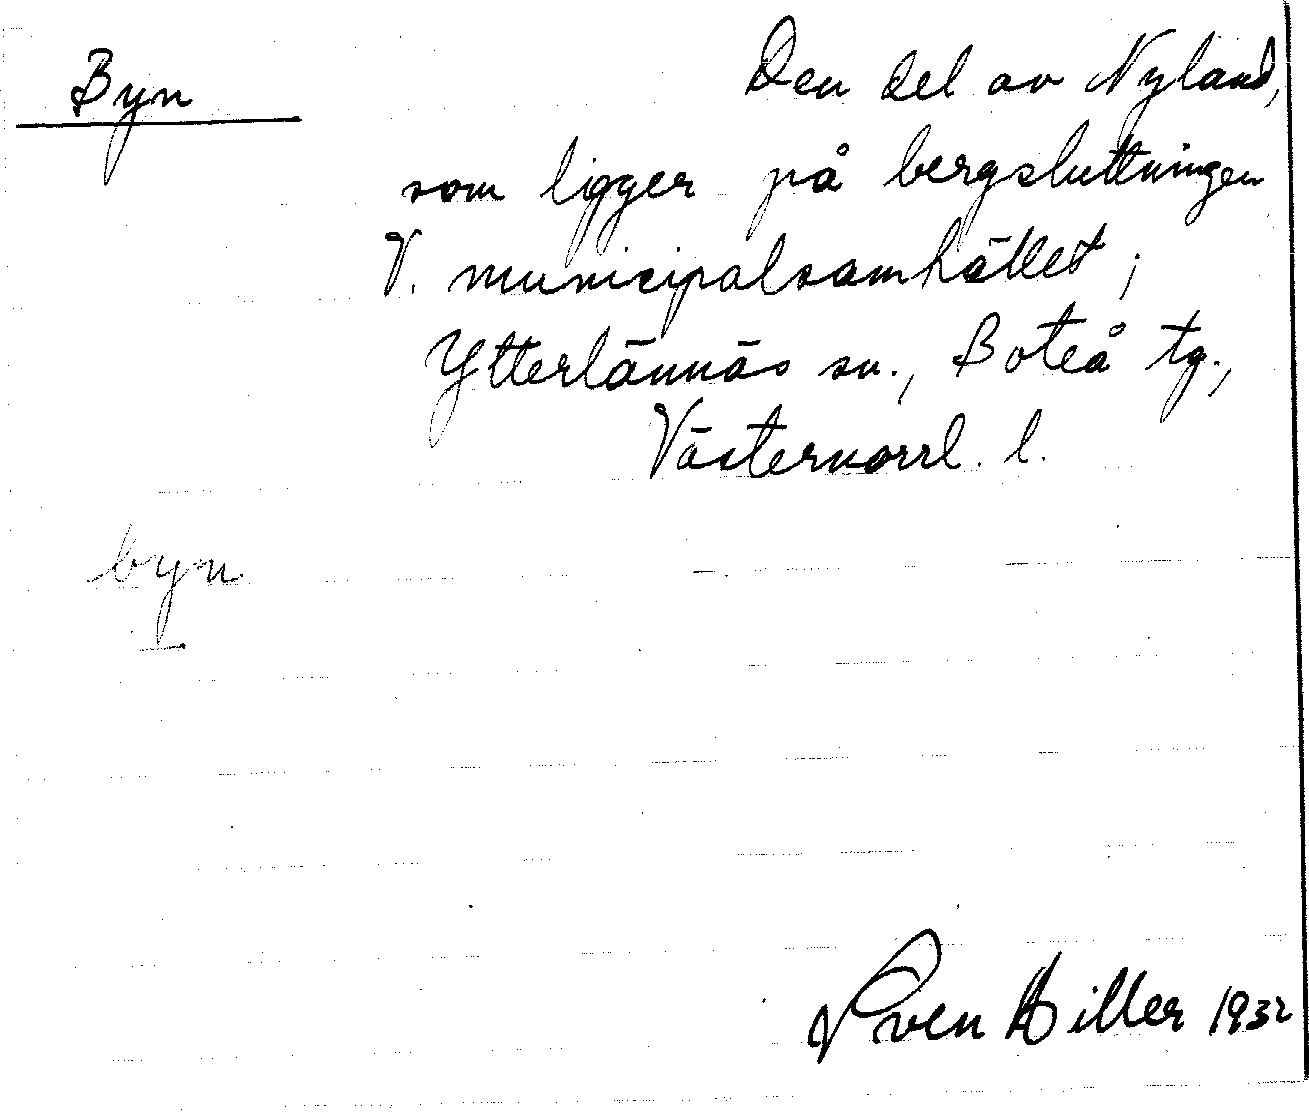 Byn
Den del av Nyland,
som ligger på bergsluttningen
V. municipalsamhället;
Ytterlännäs sn., Boteå tg.,
Västernorrl. l.
byn
Sven Hiller 1932